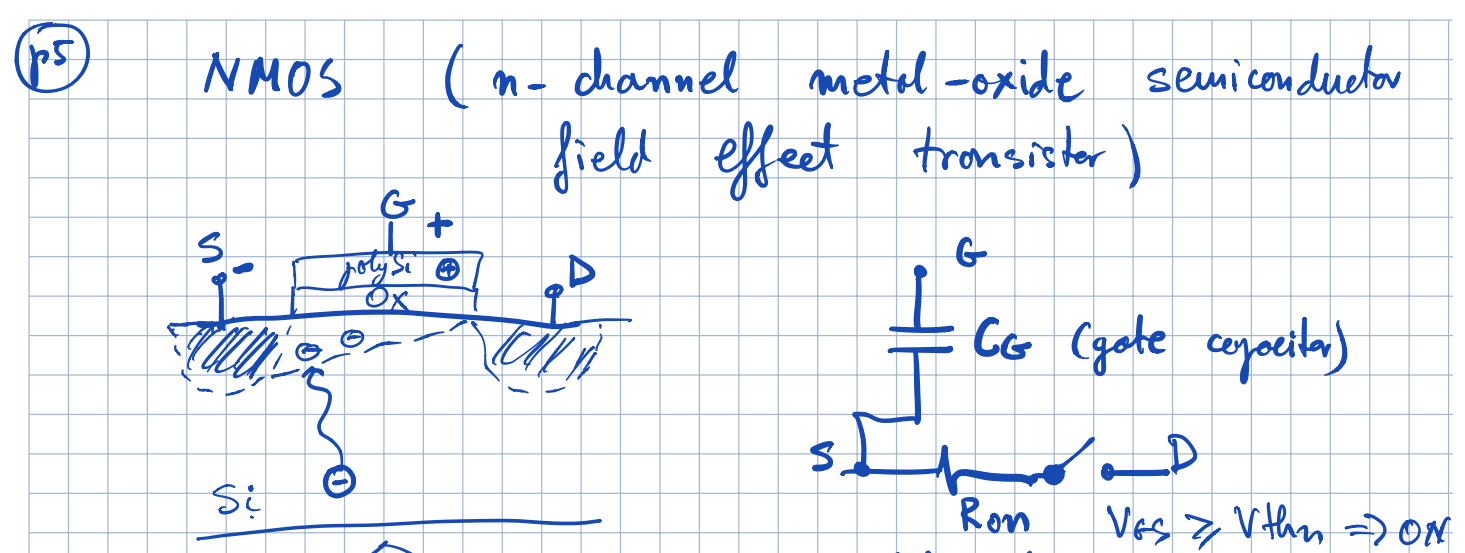 p5
NMOS (n-channel metal-oxide semiconductor
field effect transistor)
G +
S -
poly Si ⊕
D
Ox
⊖ ⊖
⊖
Si
G
CG (gate capacitor)
S
D
Ron
VGS ≥ Vthn => ON